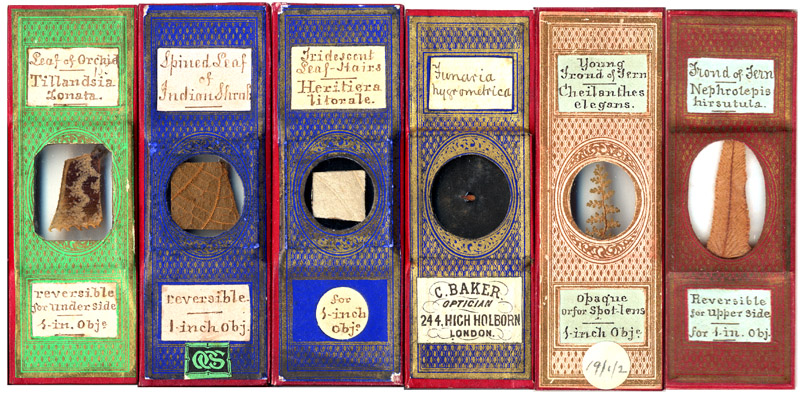 Leaf of Orchid
Tillandsia
Zonata.
reversible
for under side
1-in. Obj.
Spined Leaf
of
Indian Shrub
reversible.
1-inch obj.
Iridescent
Leaf-Hairs
Heritiera
litorale.
for
1-inch
Obje.
Funaria
hygrometrica
C. BAKER,
OPTICIAN
244, HIGH HOLBORN
LONDON.
Young
Frond of Fern
Cheilanthes
elegans.
Opaque
or for Spot-lens
1-inch Obje.
19/1/2
Frond of Fern
Nephrolepis
hirsutula.
Reversible
for Upper side
for 1-in. Obj.